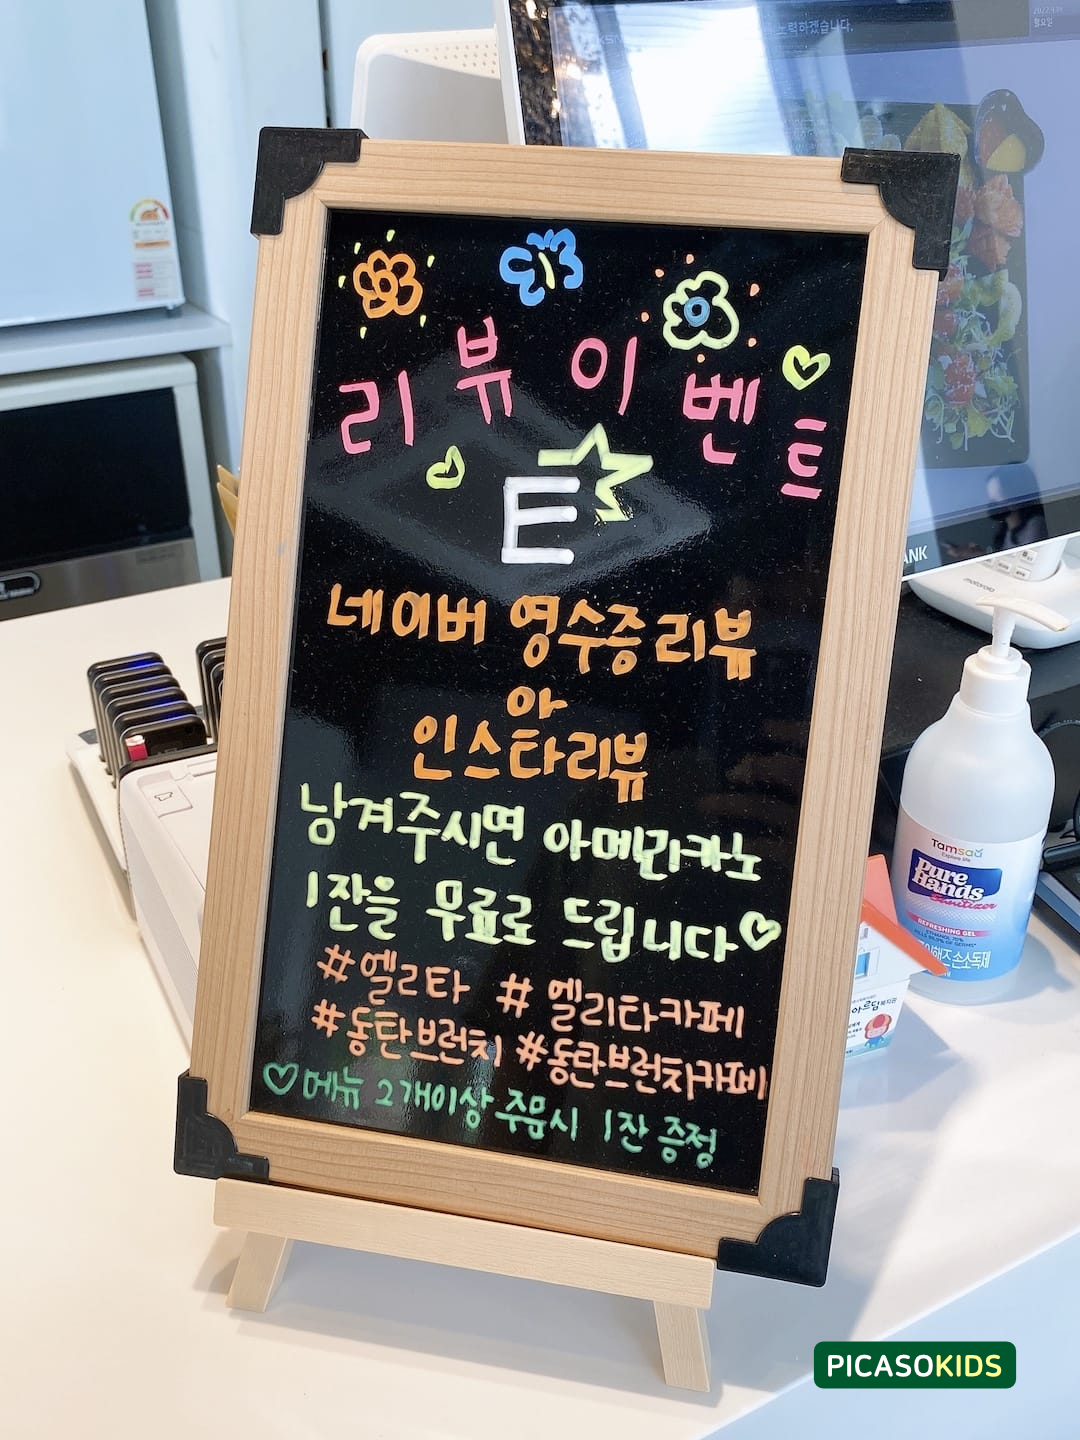 노력하겠습니다.
월요일
리뷰이벤트
E
네이버 영수증리뷰
아
인스타리뷰
남겨주시면 아메리카노
1잔을 무료로 드립니다♡
#엘리타 #엘리타카페
#동탄브런치 #동탄브런치카페
♡메뉴 2개이상 주문시 1잔 증정
ANK
motorola
Tamsaa
Explore life
Pure
Hands
Sanitizer
REFRESHING GEL
ETHANOL 70%
손소독제
PICASOKIDS